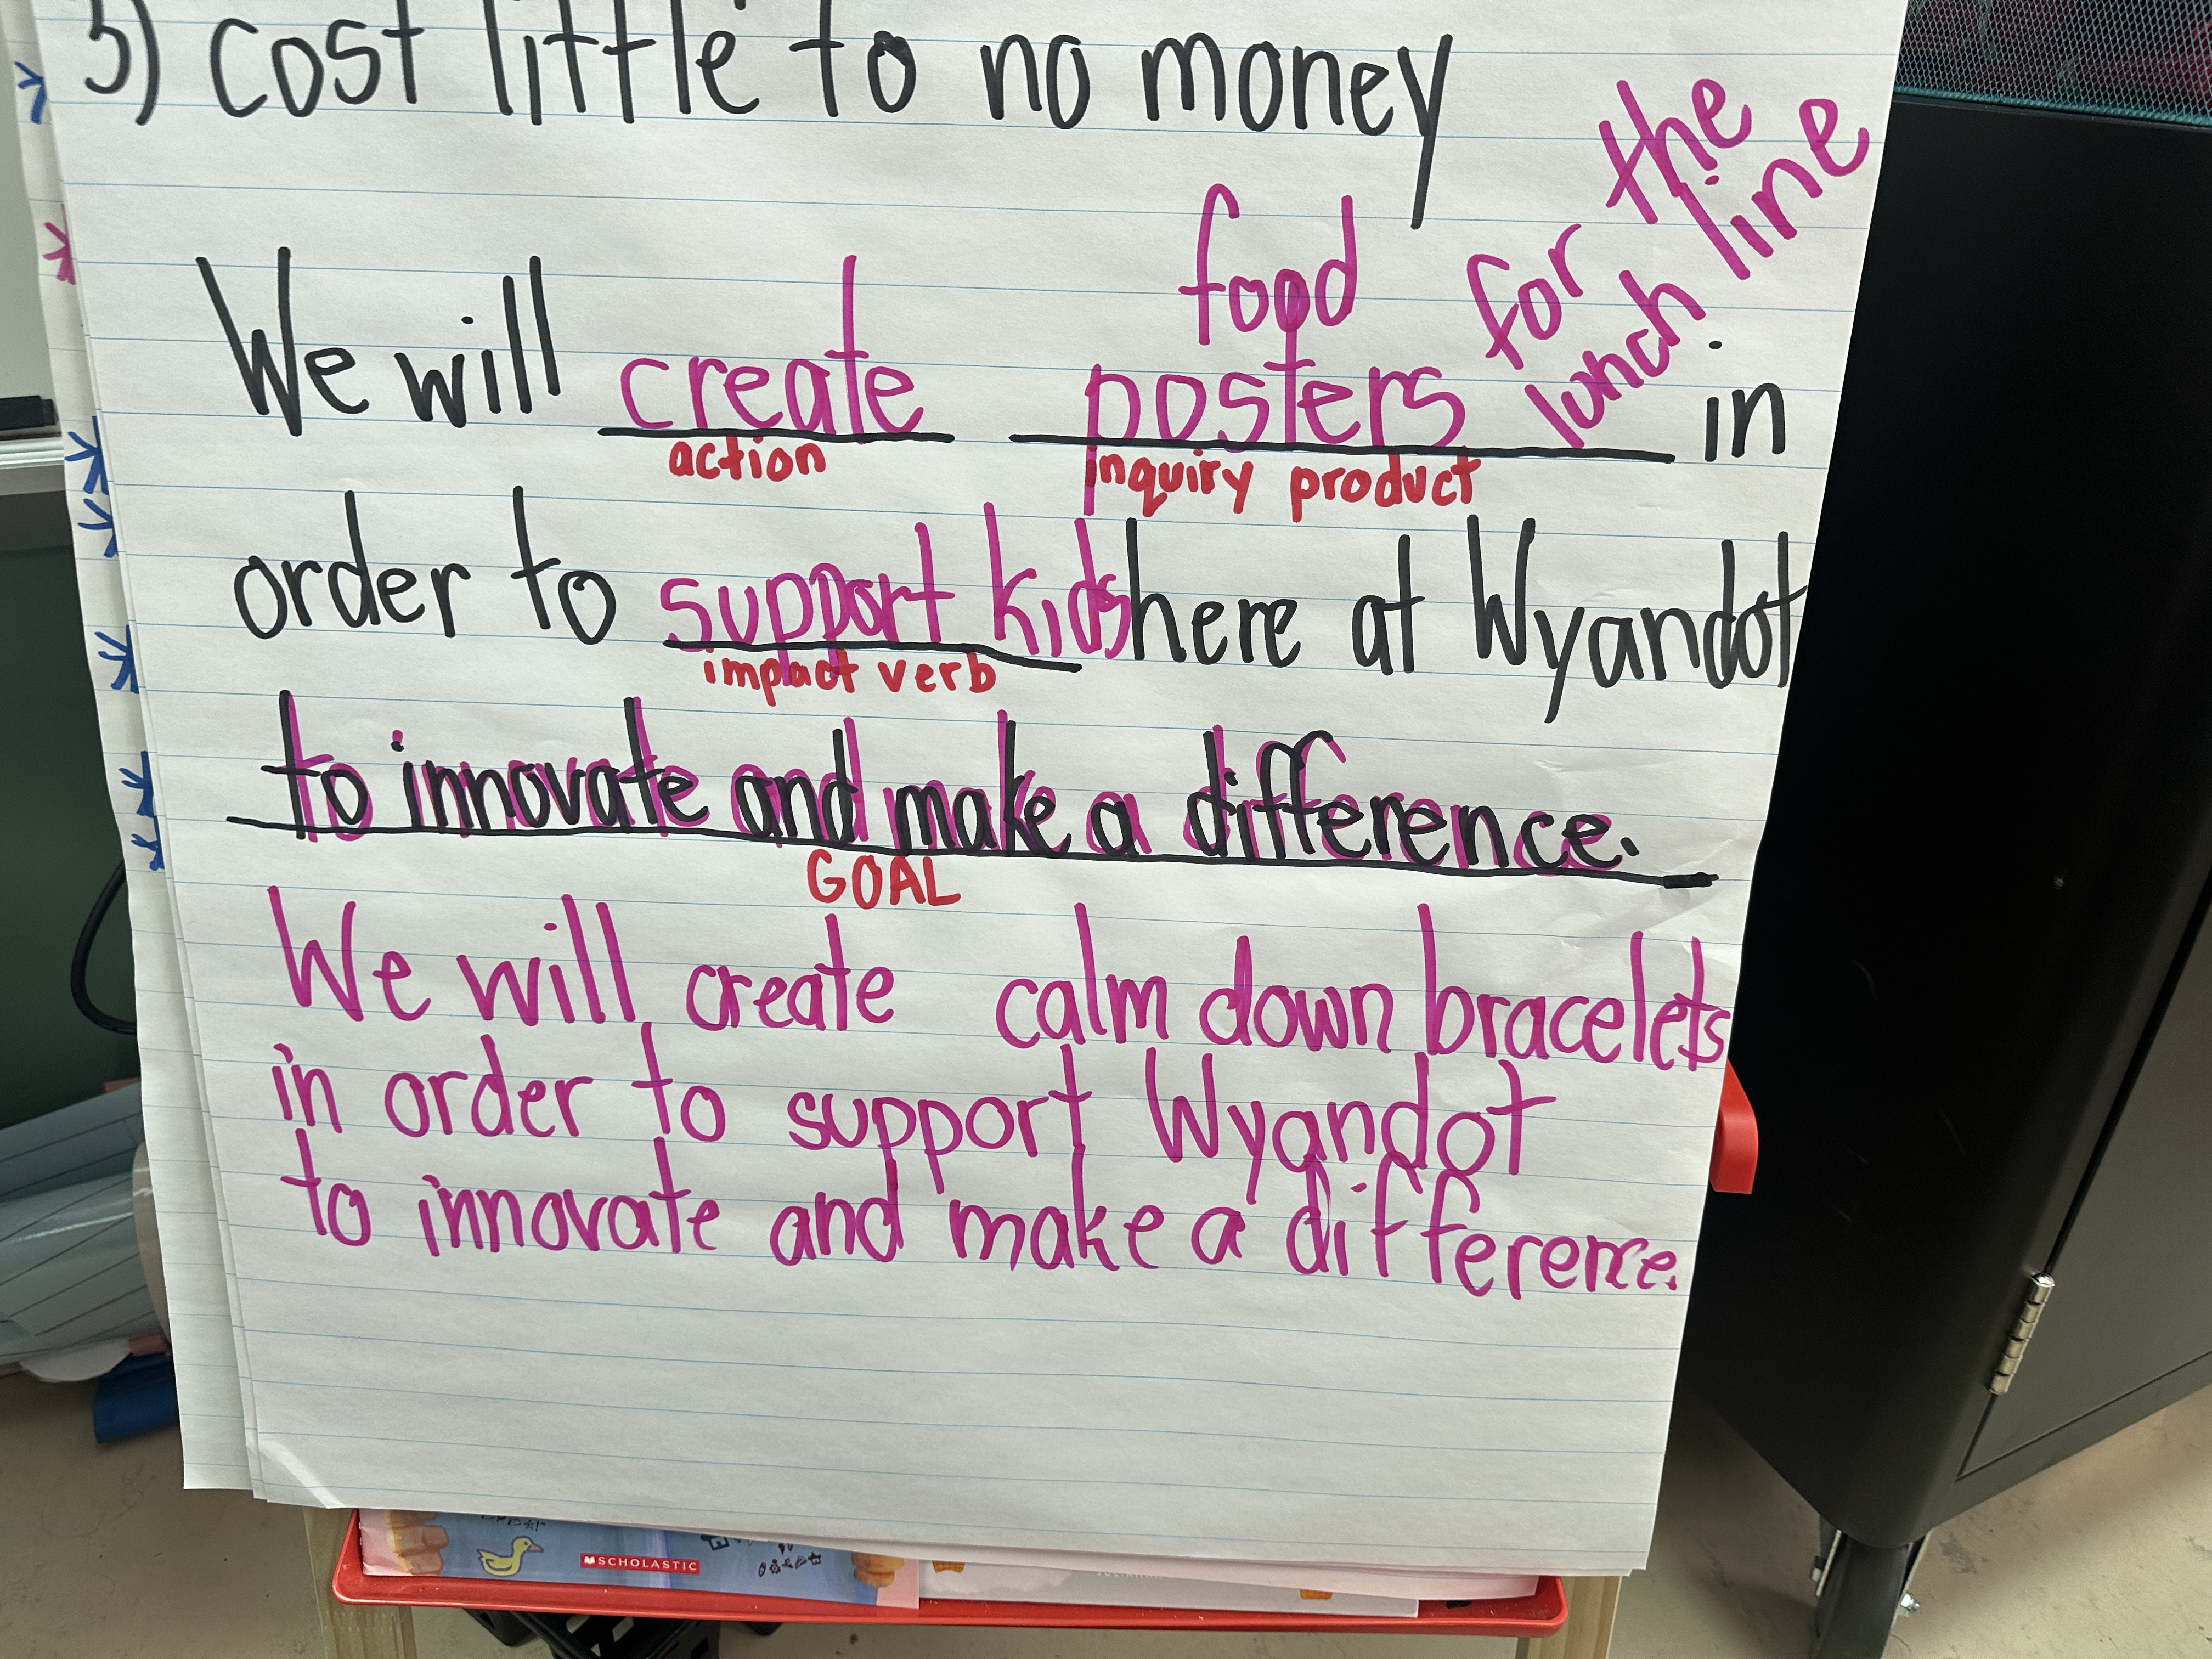 3) cost little to no money
We will create food posters for the lunch line in
action inquiry product
order to support kids here at Wyandot
impact verb
to innovate and make a difference.
GOAL
We will create calm down bracelets
in order to support Wyandot
to innovate and make a difference.
SCHOLASTIC